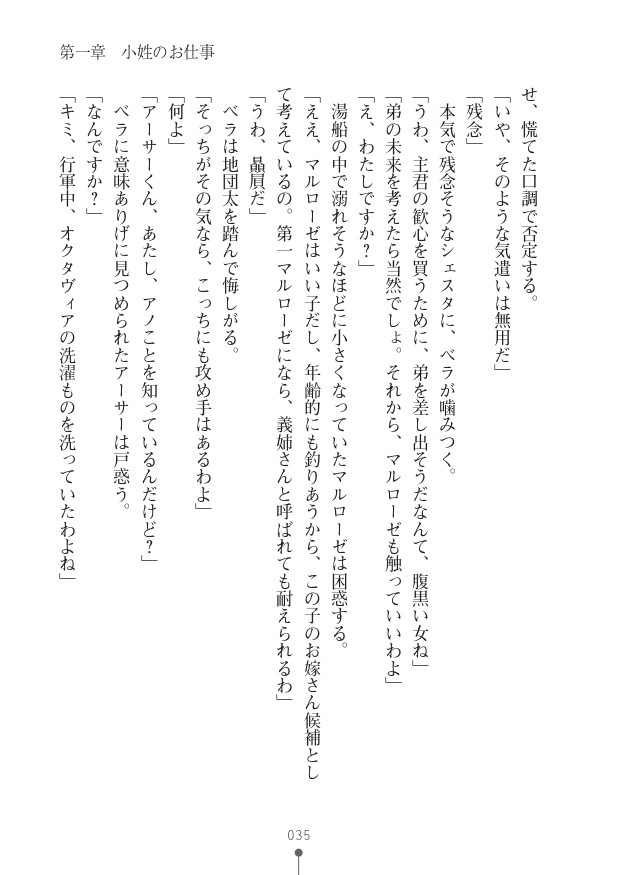 第一章　小姓のお仕事
せ、慌てた口調で否定する。
「いや、そのような気遣いは無用だ」
「残念」
　本気で残念そうなシェスタに、ベラが嚙みつく。
「うわ、主君の歓心を買うために、弟を差し出そうだなんて、腹黒い女ね」
「弟の未来を考えたら当然でしょ。それから、マルローゼも触っていいわよ」
「え、わたしですか？」
　湯船の中で溺れそうなほどに小さくなっていたマルローゼは困惑する。
「ええ、マルローゼはいい子だし、年齢的にも釣りあうから、この子のお嫁さん候補とし
て考えているの。第一マルローゼになら、義姉さんと呼ばれても耐えられるわ」
「うわ、贔屓だ」
　ベラは地団太を踏んで悔しがる。
「そっちがその気なら、こっちにも攻め手はあるわよ」
「何よ」
「アーサーくん、あたし、アノことを知っているんだけど？」
　ベラに意味ありげに見つめられたアーサーは戸惑う。
「なんですか？」
「キミ、行軍中、オクタヴィアの洗濯ものを洗っていたわよね」
035